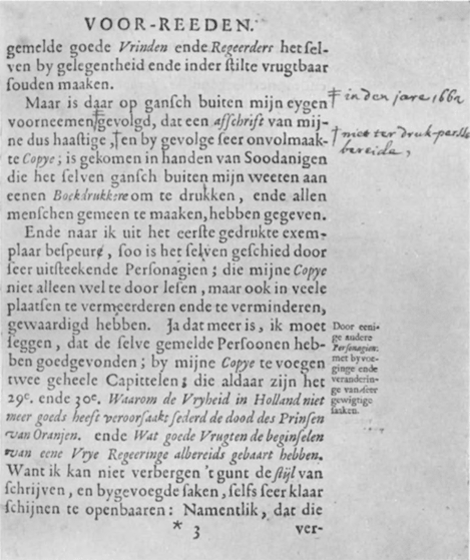 VOOR-REEDEN.
gemelde goede Vrinden ende Regeerders het sel-
ven by gelegentheid ende inder stilte vrugtbaar
souden maaken.
Maar is daar op gansch buiten mijn eygen
voorneemen ‡ gevolgd, dat een afschrift van mij-
ne dus haastige, † en by gevolge seer onvolmaak-
te Copye; is gekomen in handen van Soodanigen
die het selven gansch buiten mijn weeten aan
eenen Boekdrukkere om te drukken, ende allen
menschen gemeen te maaken, hebben gegeven.
Ende naar ik uit het eerste gedrukte exem-
plaar bespeure, soo is het selven geschied door
seer uitsteekende Personagien; die mijne Copye
niet alleen wel te door lesen, maar ook in veele
plaatsen te vermeerderen ende te verminderen,
gewaardigd hebben. Ja dat meer is, ik moet
seggen, dat de selve gemelde Persoonen heb-
ben goedgevonden; by mijne Copye te voegen
twee geheele Capittelen; die aldaar zijn het
29e. ende 30e. Waarom de Vryheid in Holland niet
meer goeds heeft veroorsaakt sederd de dood des Prinsen
van Oranjen. ende Wat goede Vrugten de beginselen
van eene Vrye Regeeringe albereids gebaart hebben.
Want ik kan niet verbergen 't gunt de stijl van
schrijven, en bygevoegde saken, selfs seer klaar
schijnen te openbaaren: Namentlik, dat die
* 3 ver-
‡ in den jare 1662
† niet ter druk-persse
bereide,
Door eeni-
ge andere
Personagien:
met byvoe-
ginge ende
veranderin-
ge van seer
gewigtige
saken.